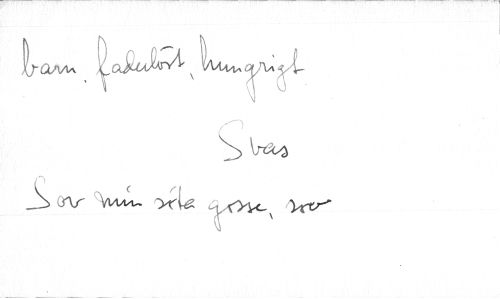 barn, faderlöst, hungrigt
Svas
Sov min söta gosse, sov